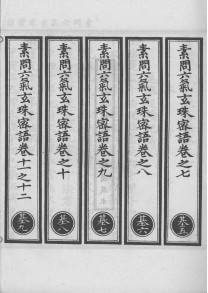 素問六氣玄珠密語卷之七
基五
素問六氣玄珠密語卷之八
基六
素問六氣玄珠密語卷之九
基七
素問六氣玄珠密語卷之十
基八
素問六氣玄珠密語卷十一之十二
基九